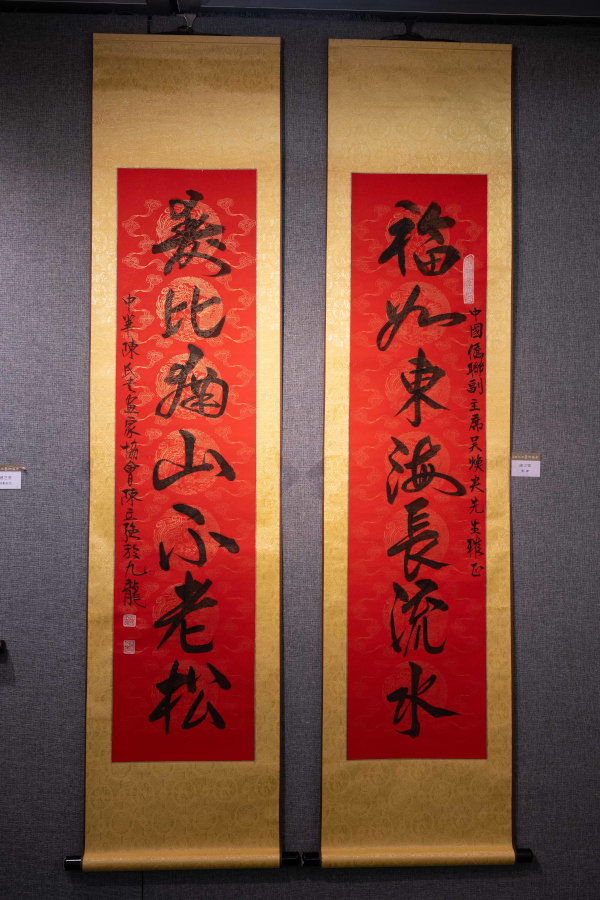 福如東海長流水
中國僑聯副主席吴焕炎先生雅正
壽比南山不老松
中华陳氏书画家協會陳立強於九龍